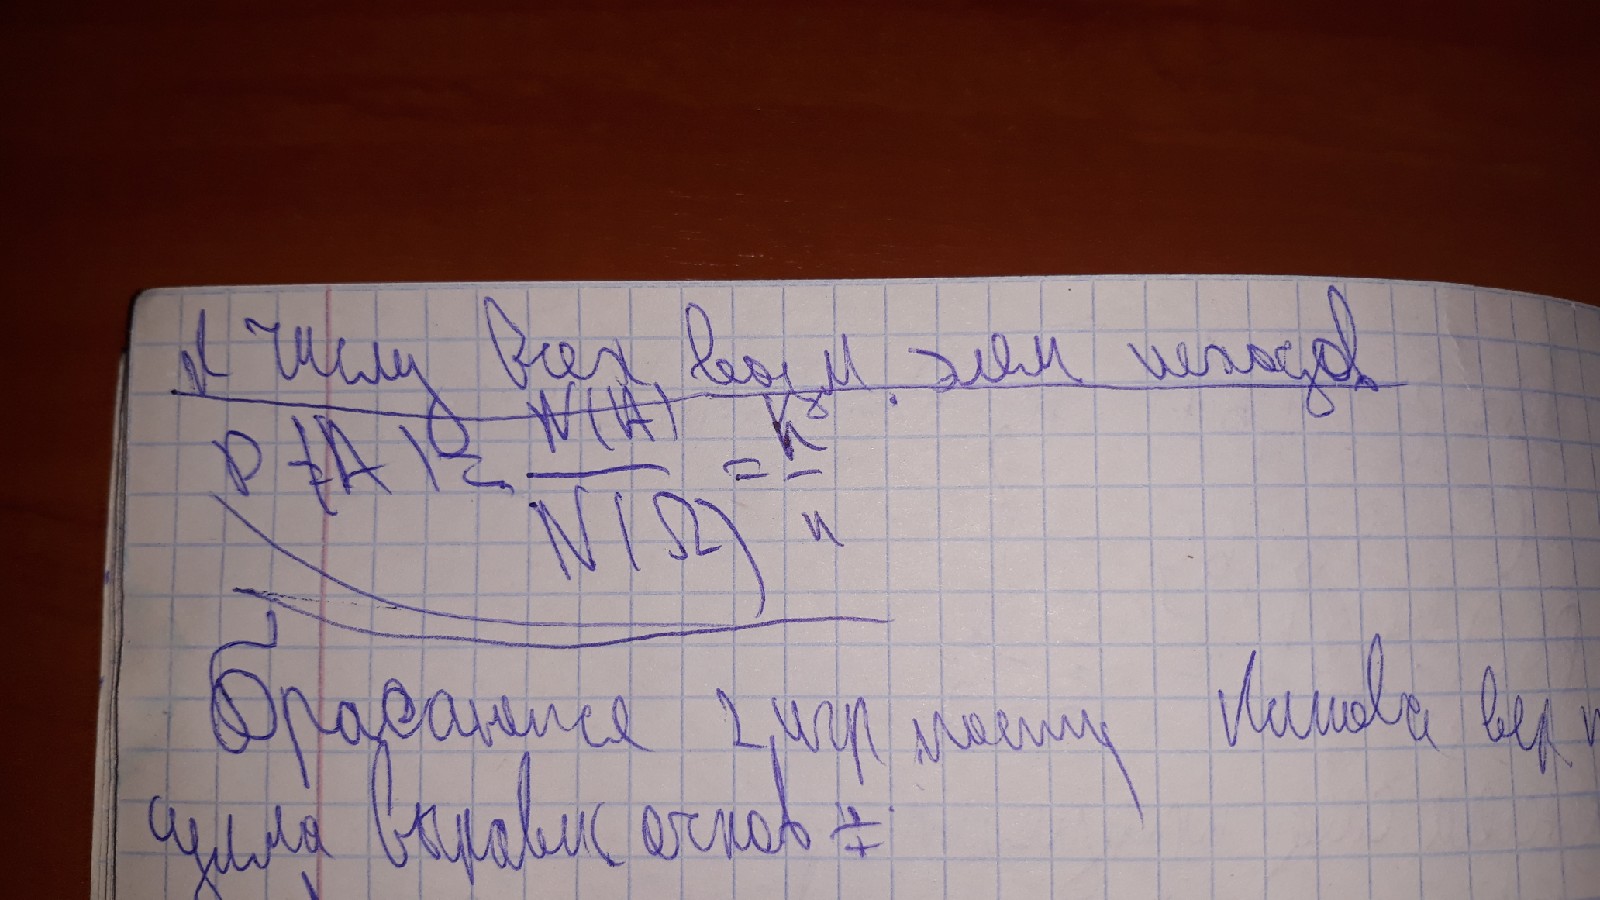 к числу всех возм элем исходов
P(A) = N(A) / N(Ω) = k / n
Бросаются 2 игр кости Какова вер
сумма выпавш очков 7